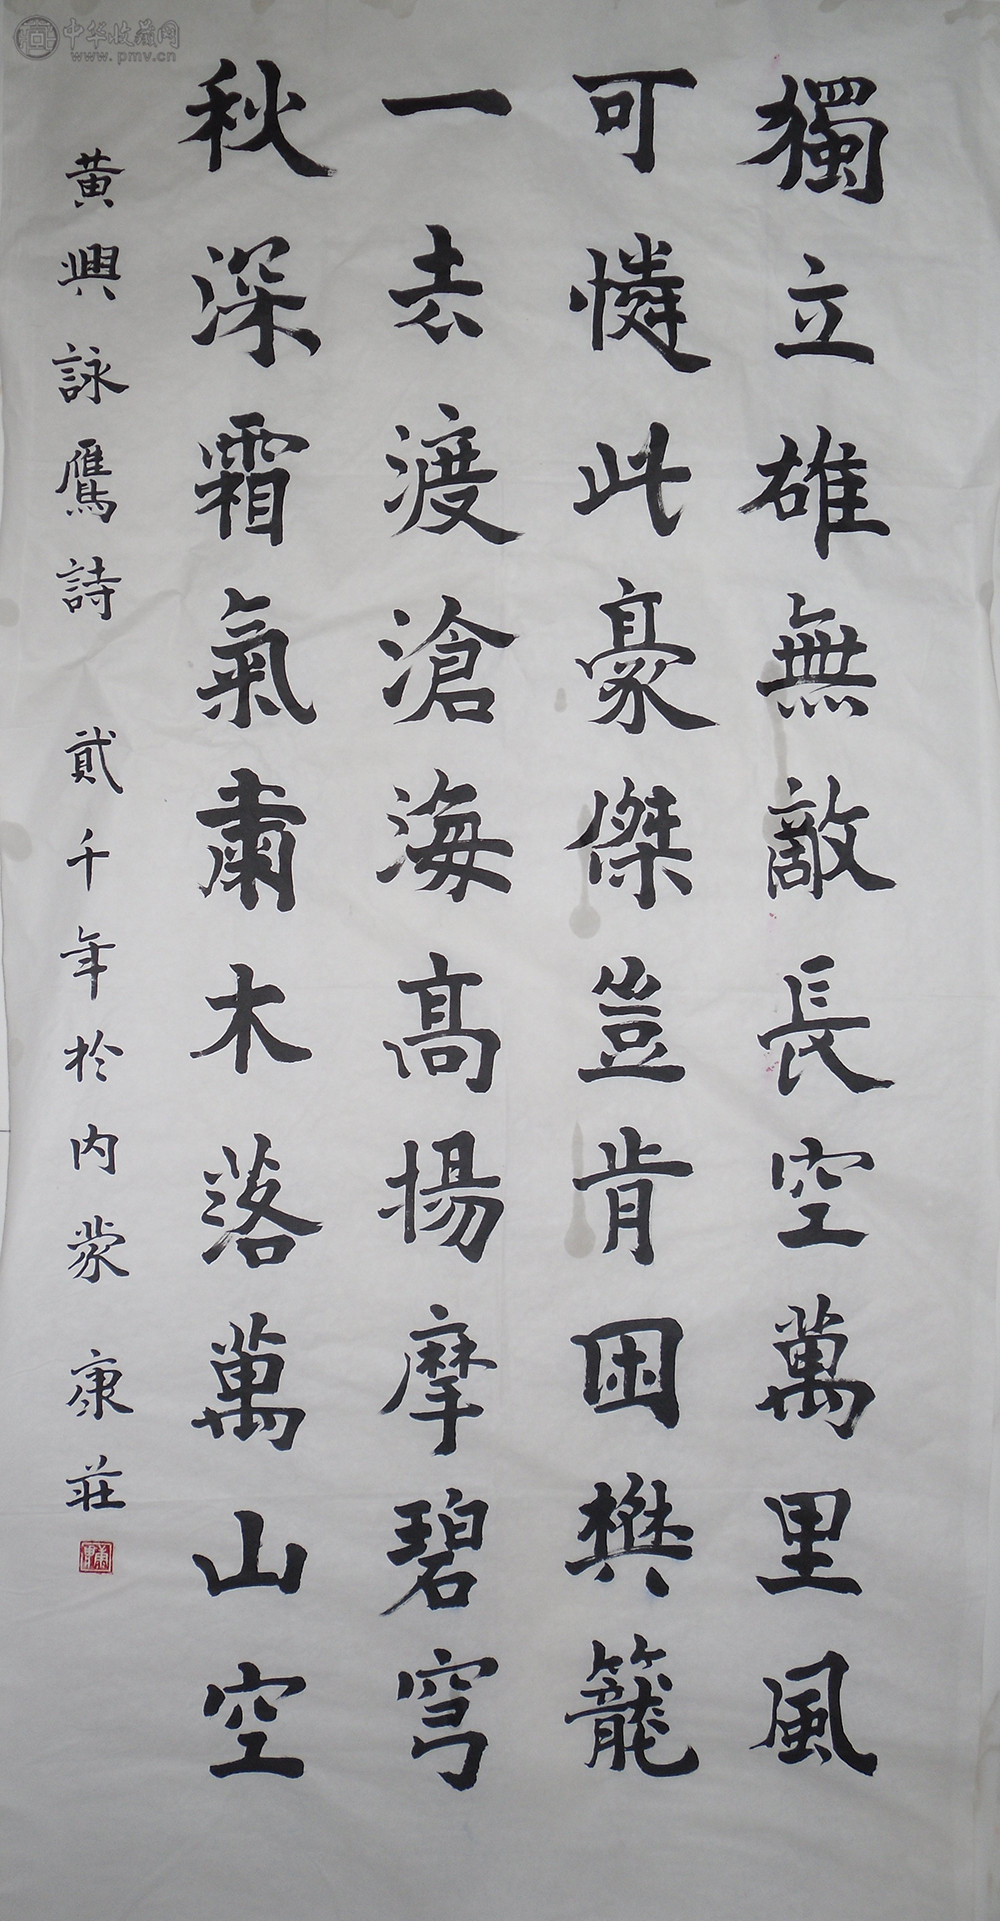 中华收藏网
www.pmv.cn
獨立雄無敵長空萬里風
可憐此豪傑豈肯困樊籠
一去渡滄海高揚摩碧穹
秋深霜氣肅木落萬山空
黄興詠鷹詩 貳千年於内蒙 康莊